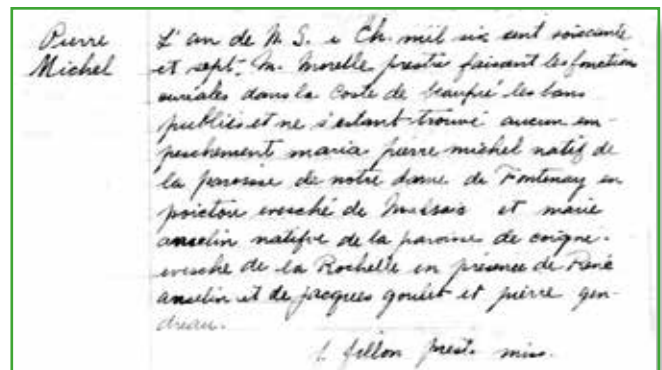 Pierre
Michel
L'an de N. S. i Ch. mil six sent soiscente
et sept. M. Morelle prestre faisant les fonction
curiales dans la Coste de beaupré les bans
publiés et ne s'estant trouvé aucun em-
peschement maria pierre michel natif de
la paroisse de notre dame de Fontenay en
poictou evesché de et marie
anselin natifve de la paroisse de coigne.
evesche de la Rochelle en presence de René
anselin et de jacques goulet et pierre gen-
dreau.
f. fillon prest. miss.